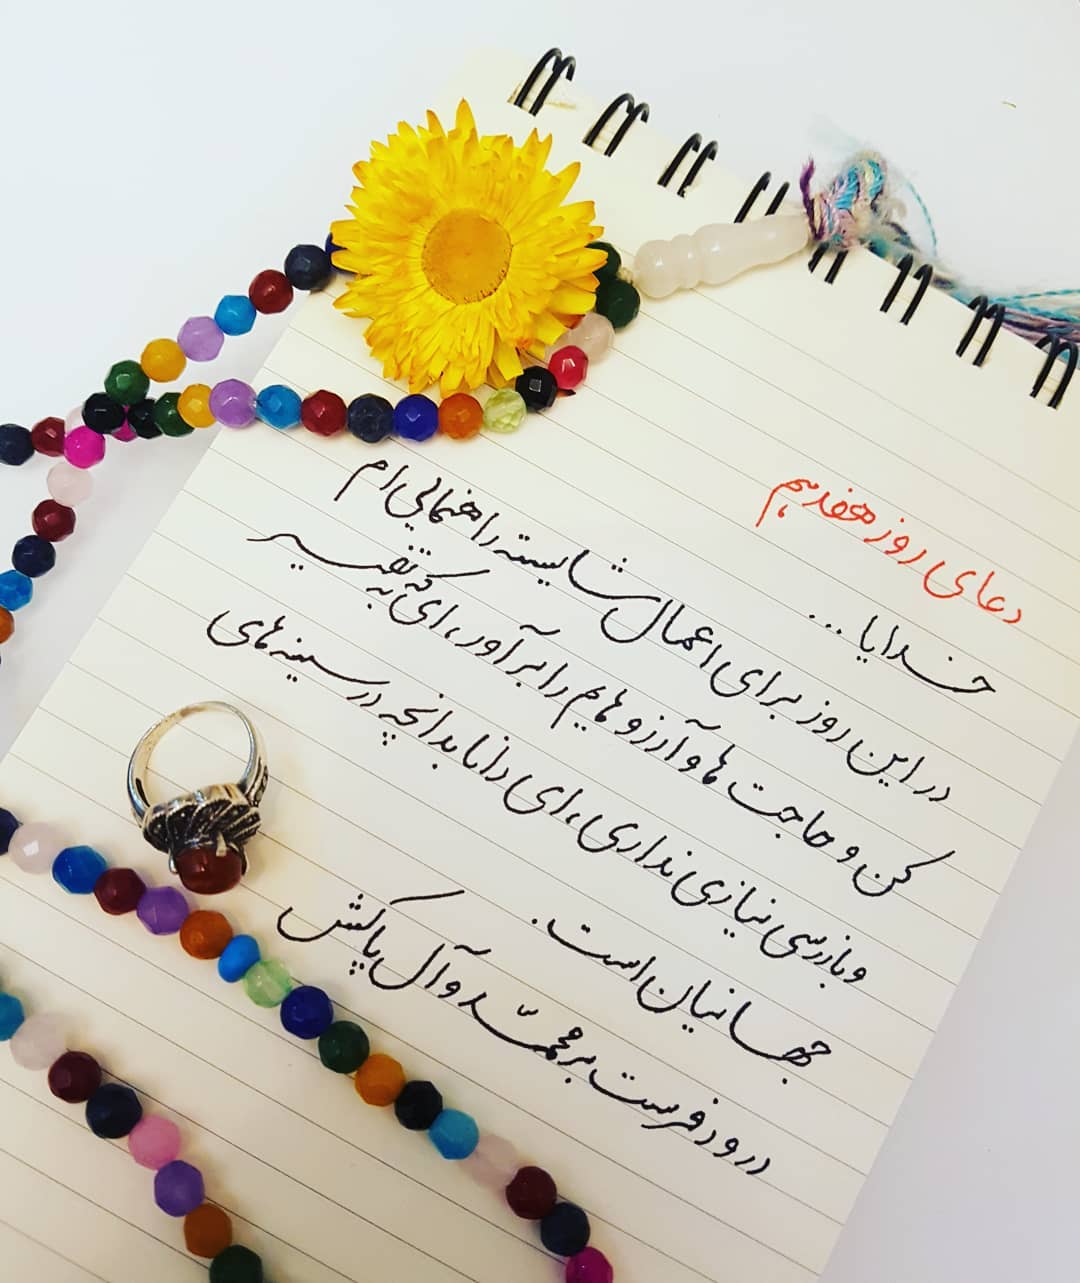 دعای روز هفدهم
خدایا...
در این روز برای اعمال شایسته راهنمایی ام
کن و حاجت ها و آرزوهایم را برآور، ای که به تفسیر
و بازرسی نیازی نداری، ای دانا بدانچه در سینه های
جهانیان است.
درود فرست بر محمّد و آل پاکش